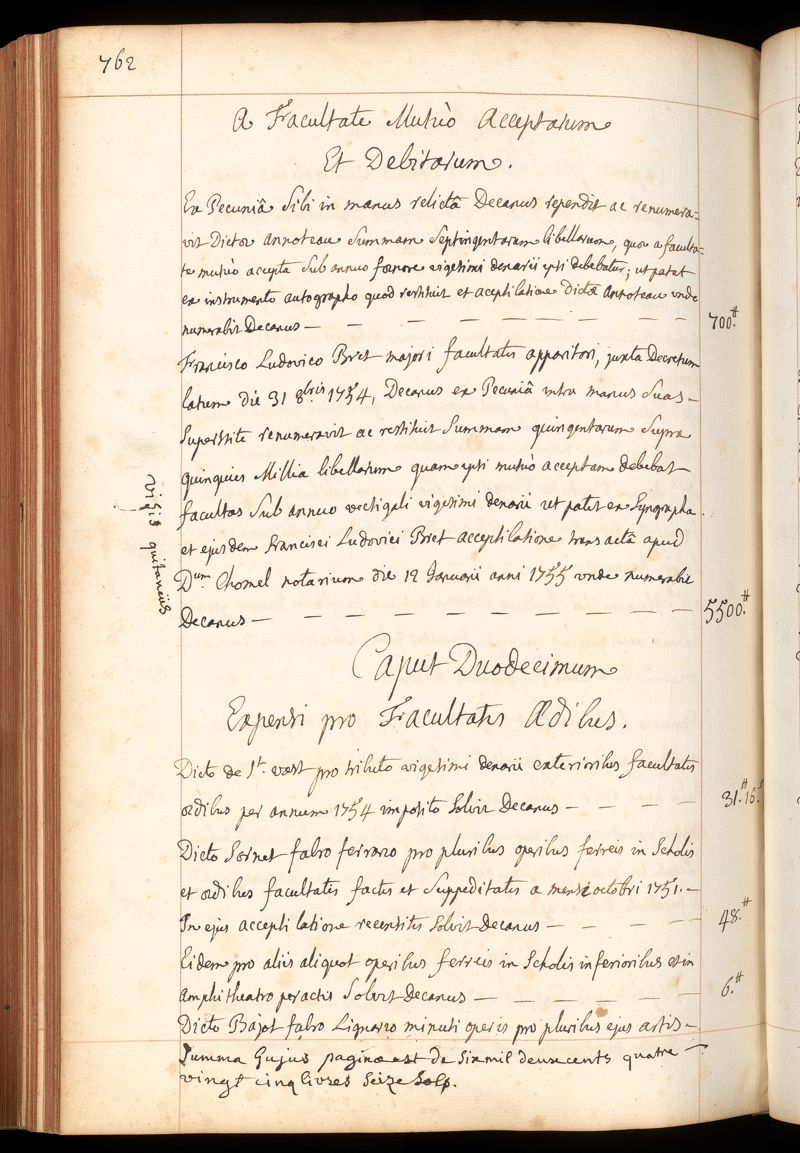 762
A Facultate Mutuò Acceptarum
Et Debitarum.
Ex Pecuniâ Sibi in manus relictâ Decanus rependit ac renumera=
vit Dictæ annoteau Summam Septingentarum libellarum, quæ a faculta=
te mutuò accepta Sub annuo fœnore vigesimi denarii ipsi debebatur; ut patet
ex instrumento autographo quod restituit et aceptilatione Dictæ annoteau unde
numerabit Decanus — 700.#
Francisco Ludovico Bret majori facultatis apparitori, juxta Decretum
latum die 31 8bris 1754, Decanus ex Pecuniâ intra manus Suas
Superstite renumeravit ac restituit Summam quingentarum Supra
quinquies Millia libellarum quam ipsi mutuò acceptam debebat
facultas Sub annuo vectigali vigesimi denarii ut patet ex Syngrapha
et ejusdem francisci Ludovici Bret acceptilatione transactâ apud
Dum Chomel notarium die 12 Januarii anni 1755 unde numerabit
Decanus — 5500.#
visis quitanciis
Caput Duodecimum
Expensi pro Facultatis Ædibus.
Dicto de St. vast pro tributo vigesimi denarii exterioribus facultatis
ædibus per annum 1754 imposito Solvit Decanus — 31.# 16.s
Dicto Sornet fabro ferrario pro pluribus operibus ferreis in Scholis
et ædibus facultatis factis et Suppeditatis a mense octobri 1751. —
In ejus acceptilatione recensitis Solvit Decanus — 48.#
Eidem pro aliis aliquot operibus ferreis in Scholis inferioribus et in
amphitheatro peractis Solvit Decanus — 6.#
Dicto Bajot fabro Lignario minuti operis pro pluribus ejus artis —
Summa hujus paginæ est de Six mil deux cents quatre —
vingt cinq livres Seize Sols.